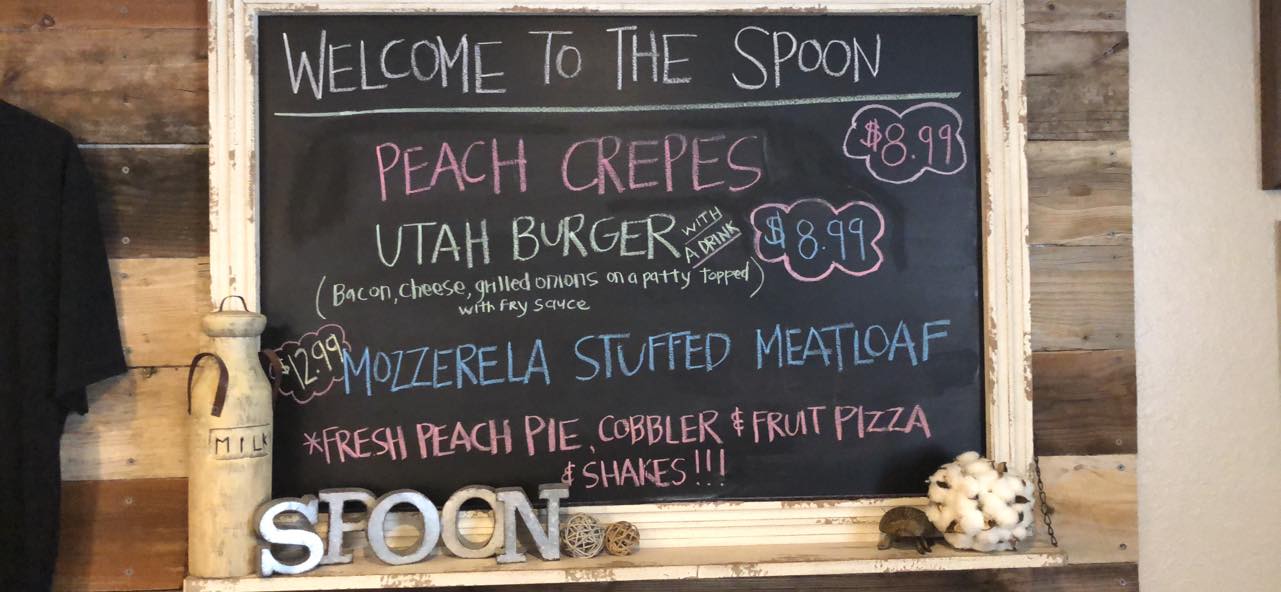 WELCOME TO THE SPOON
$8.99
PEACH CREPES
UTAH BURGER WITH A DRINK $8.99
(Bacon, cheese, grilled onions on a patty topped)
with fry sauce
$12.99 MOZZERELA STUFFED MEATLOAF
*FRESH PEACH PIE, COBBLER & FRUIT PIZZA
& SHAKES!!!
MILK
SPOON